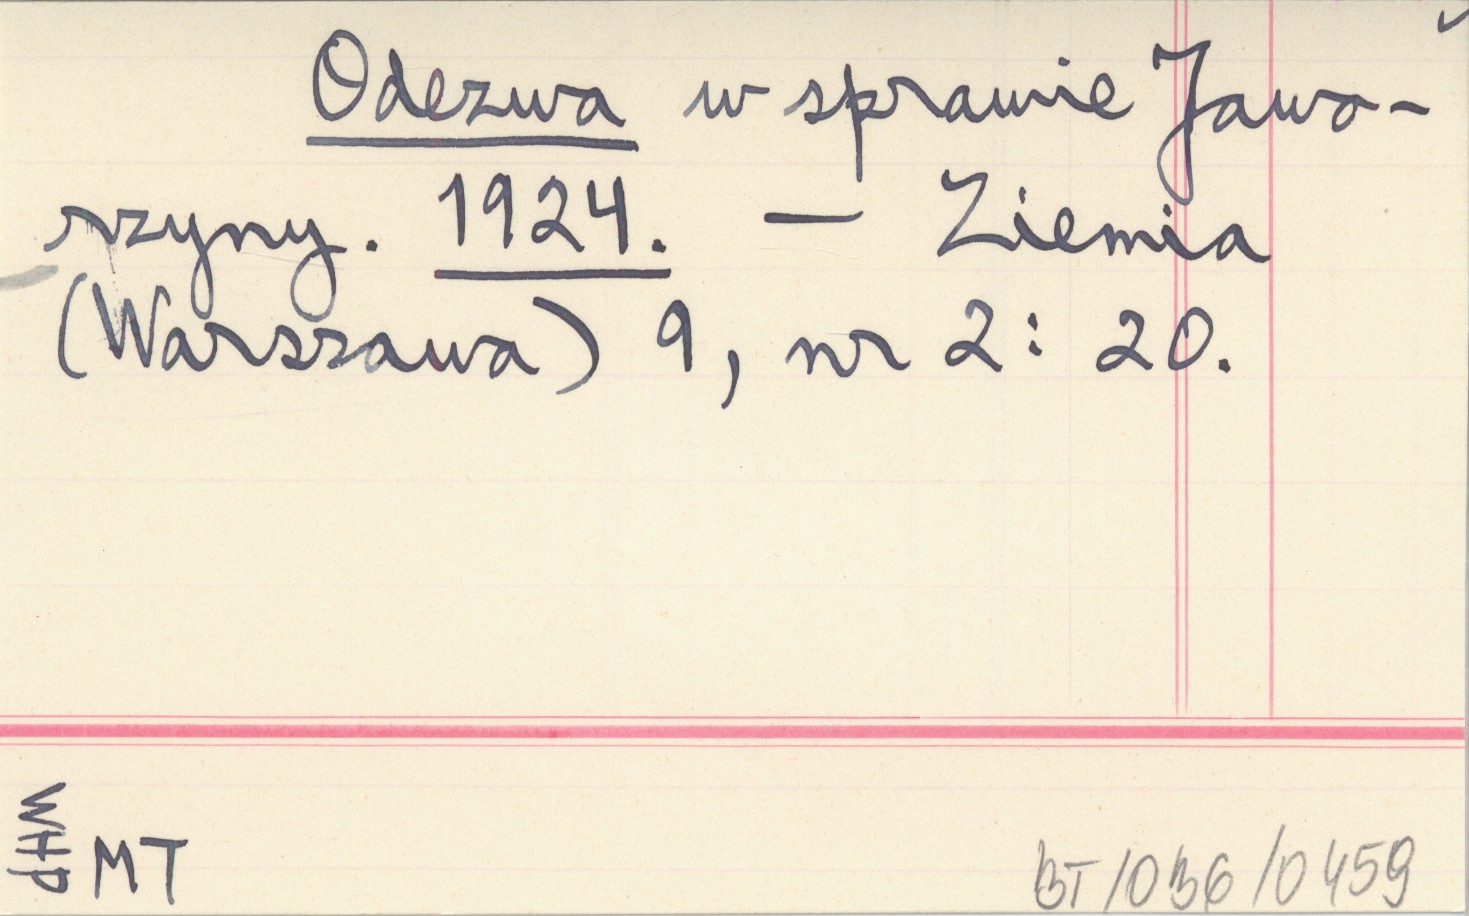 Odezwa w sprawie Jawo-
rzyny. 1924. — Ziemia
(Warszawa) 9, nr 2: 20.
MT
BT/036/0459